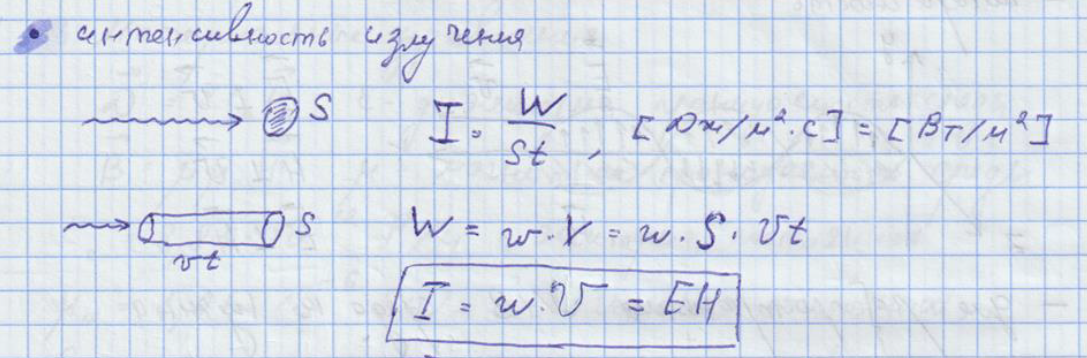 • интенсивность излучения
S I = W/St, [Дж/м²·с] = [Вт/м²]
S W = w·V = w·S·vt
vt
I = w·v = EH